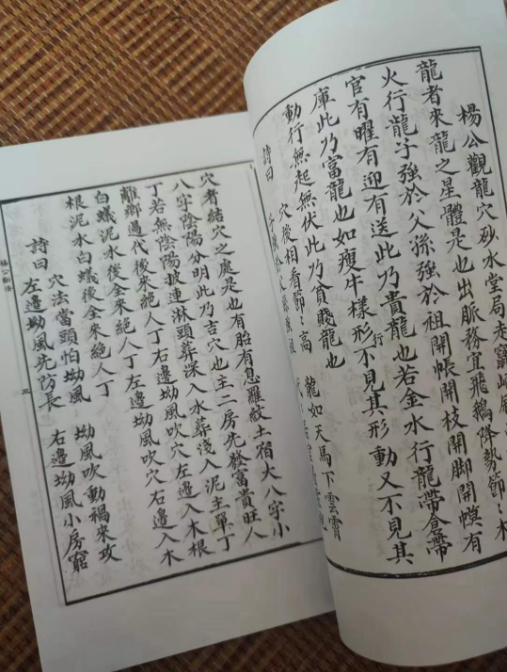 楊公觀龍穴砂水堂局
龍者來龍之星體是也出脉務宜飛鵝降勢節
火行龍子強於父孫強於祖開帳開枝開脚開帿有
官有曜有迎有送此乃貴龍也若金水行龍帶倉帶
庫此乃富龍也如瘦牛樣形行不見其形動又不見其
動行無起無伏此乃貧賤龍也
詩曰
龍如天馬下雲霄
穴後相看節節高
穴者結穴之處是也有胎有息羅紋土宿大八字小
八字陰陽分明此乃吉穴也主二房先發富貴旺人
丁若無陰陽披連淋頭葬深入水葬淺入泥主單丁
離鄉過代後來絕人丁右邊坳風吹穴左邊入木根
白蟻泥水後全來絕人丁左邊坳風吹穴右邊入木
根泥水白蟻後全來絕人丁
詩曰
穴法當頭怕坳風 坳風吹動禍來攻
左邊坳風先防長 右邊坳風小房窮